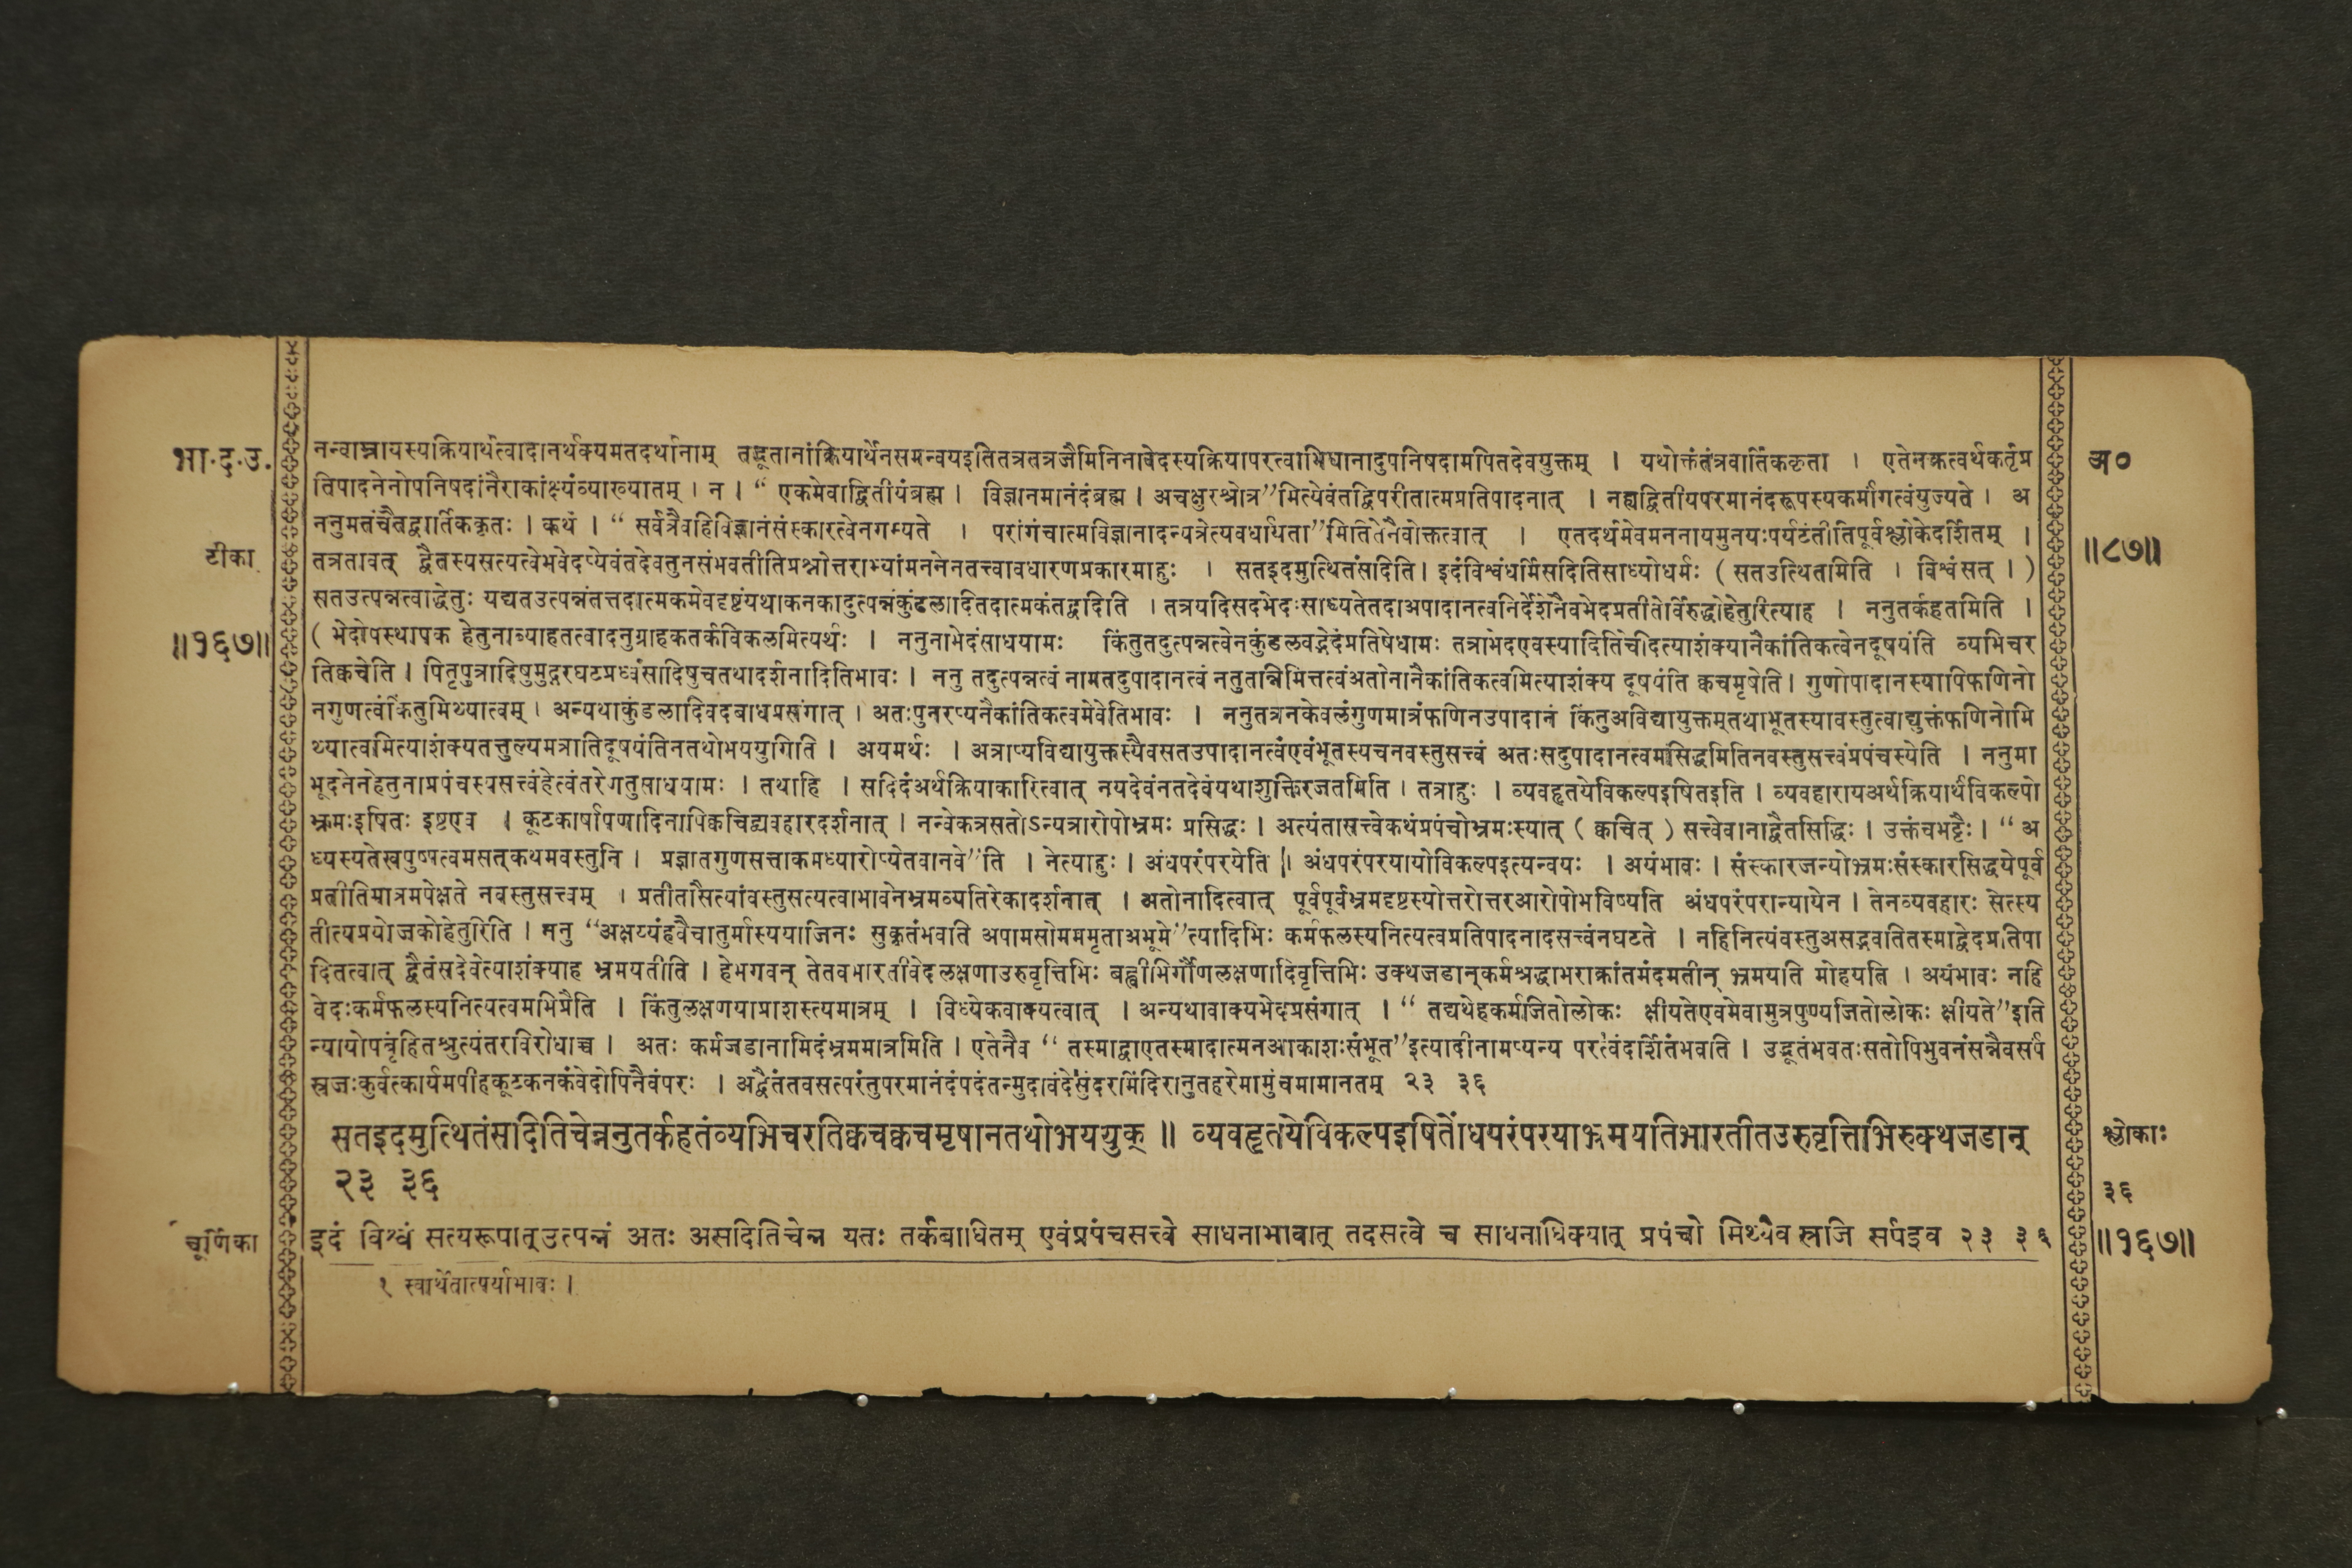 भा.द.उ.
टीका
॥१६७॥
चूर्णिका
नन्वाम्नायस्यक्रियार्थत्वादानर्थक्यमतदर्थानाम् तद्भूतानांक्रियार्थेनसमन्वयइतितत्रतत्रजैमिनिनावेदस्यक्रियापरत्वाभिधानादुपनिषदामपितदेवयुक्तम् । यथोक्तंतंत्रवार्तिककृता । एतेनक्रत्वर्थकर्तृप्र
तिपादनेनोपनिषदांनैराकांक्ष्यंव्याख्यातम् । न । “ एकमेवाद्वितीयंब्रह्म । विज्ञानमानंदंब्रह्म । अचक्षुरश्रोत्र”मित्येवंतद्विपरीतात्मप्रतिपादनात् । नह्यद्वितीयपरमानंदरूपस्यकर्मांगत्वंयुज्यते । अ
ननुमतंचैतद्वार्तिककृतः । कथं । “ सर्वत्रैवहिविज्ञानंसंस्कारत्वेनगम्यते । परांगंचात्मविज्ञानादन्यत्रेत्यवधार्यता”मितितेनैवोक्तत्वात् । एतदर्थमेवमननायमुनयःपर्यटंतीतिपूर्वश्लोकेदर्शितम् ।
तत्रतावत् द्वैतस्यसत्यत्वेभवेदप्येवंतदेवतुनसंभवतीतिप्रश्नोत्तराभ्यांमननेनतत्त्वावधारणप्रकारमाहुः । सतइदमुत्थितंसदिति। इदंविश्वंधर्मिसदितिसाध्योधर्मः (सतउत्थितमिति । विश्वंसत् । )
सतउत्पन्नत्वाद्धेतुः यद्यतउत्पन्नंतत्तदात्मकमेवदृष्टंयथाकनकादुत्पन्नंकुंडलादितदात्मकंतद्वदिति । तत्रयदिसदभेदःसाध्यतेतदाअपादानत्वनिर्देशेनैवभेदप्रतीतेर्विरुद्धोहेतुरित्याह । ननुतर्कहतमिति ।
( भेदोपस्थापक हेतुनाव्याहतत्वादनुग्राहकतर्कविकलमित्यर्थः । ननुनाभेदंसाधयामः किंतुतदुत्पन्नत्वेनकुंडलवद्भेदंप्रतिषेधामः तत्राभेदएवस्यादितिचेदित्याशंक्यानैकांतिकत्वेनदूषयंति व्यभिचर
तिक्वचेति । पितृपुत्रादिषुमुद्गरघटप्रध्वंसादिषुचतथादर्शनादितिभावः । ननु तदुत्पन्नत्वं नामतदुपादानत्वं नतुतन्निमित्तत्वंअतोनानैकांतिकत्वमित्याशंक्य दूषयंति क्वचमृषेति। गुणोपादानस्यापिफणिनो
नगुणत्वंकिंतुमिथ्यात्वम् । अन्यथाकुंडलादिवदबाधप्रसंगात् । अतःपुनरप्यनैकांतिकत्वमेवेतिभावः । ननुतत्रनकेवलंगुणमात्रंफणिनउपादानं किंतुअविद्यायुक्तम्तथाभूतस्यावस्तुत्वाद्युक्तंफणिनोमि
थ्यात्वमित्याशंक्यतत्तुल्यमत्रातिदूषयंतिनतथोभययुगिति । अयमर्थः । अत्राप्यविद्यायुक्तस्यैवसतउपादानत्वंएवंभूतस्यचनवस्तुसत्त्वं अतःसदुपादानत्वमसिद्धमितिनवस्तुसत्त्वंप्रपंचस्येति । ननुमा
भूदनेनहेतुनाप्रपंचस्यसत्त्वंहेत्वंतरेणतुसाधयामः । तथाहि । सदिदंअर्थक्रियाकारित्वात् नयदेवंनतदेवंयथाशुक्तिरजतमिति । तत्राहुः । व्यवहृतयेविकल्पइषितइति । व्यवहारायअर्थक्रियार्थंविकल्पो
भ्रमःइषितः इष्टएव । कूटकार्षापणादिनापिक्वचिद्व्यवहारदर्शनात् । नन्वेकत्रसतोऽन्यत्रारोपोभ्रमः प्रसिद्धः । अत्यंतासत्त्वेकथंप्रपंचोभ्रमःस्यात् ( क्वचित् ) सत्त्वेवानाद्वैतसिद्धिः । उक्तंचभट्टैः । “ अ
ध्यस्यतेखपुष्पत्वमसत्कथमवस्तुनि । प्रज्ञातगुणसत्ताकमध्यारोप्येतवानवे”ति । नेत्याहुः । अंधपरंपरयेति । अंधपरंपरयायोविकल्पइत्यन्वयः । अयंभावः । संस्कारजन्योभ्रमःसंस्कारसिद्धयेपूर्व
प्रतीतिमात्रमपेक्षते नवस्तुसत्त्वम् । प्रतीतौसत्यांवस्तुसत्यत्वाभावेनभ्रमव्यतिरेकादर्शनात् । अतोनादित्वात् पूर्वपूर्वभ्रमदृष्टस्योत्तरोत्तरआरोपोभविष्यति अंधपरंपरान्यायेन । तेनव्यवहारः सेत्स्य
तीत्यप्रयोजकोहेतुरिति । ननु “अक्षय्यंहवैचातुर्मास्ययाजिनः सुकृतंभवति अपामसोमममृताअभूमे”त्यादिभिः कर्मफलस्यनित्यत्वप्रतिपादनादसत्त्वंनघटते । नहिनित्यंवस्तुअसद्भवतितस्माद्वेदप्रतिपा
दितत्वात् द्वैतंसदेवेत्याशंक्याह भ्रमयतीति । हेभगवन् तेतवभारतीवेदलक्षणाउरुवृत्तिभिः बह्वीभिर्गौणलक्षणादिवृत्तिभिः उक्थजडान्कर्मश्रद्धाभराक्रांतमंदमतीन् भ्रमयति मोहयति । अयंभावः नहि
वेदःकर्मफलस्यनित्यत्वमभिप्रैति । किंतुलक्षणयाप्राशस्त्यमात्रम् । विध्येकवाक्यत्वात् । अन्यथावाक्यभेदप्रसंगात् । “ तद्यथेहकर्मजितोलोकः क्षीयतेएवमेवामुत्रपुण्यजितोलोकः क्षीयते”इति
न्यायोपबृंहितश्रुत्यंतरविरोधाच्च । अतः कर्मजडानामिदंभ्रममात्रमिति । एतेनैव “ तस्माद्वाएतस्मादात्मनआकाशःसंभूत”इत्यादीनामप्यन्य परत्वंदर्शितंभवति । उद्भूतंभवतःसतोपिभुवनंसन्नैवसर्प
स्रजःकुर्वत्कार्यमपीहकूटकनकंवेदोपिनैवंपरः । अद्वैतंतवसत्परंतुपरमानंदंपदंतन्मुदावंदेसुंदरमिंदिरानुतहरेमामुंचमामानतम् २३ ३६
सतइदमुत्थितंसदितिचेन्ननुतर्कहतंव्यभिचरतिक्वचक्वचमृषानतथोभययुक् ॥ व्यवहृतयेविकल्पइषितोंधपरंपरयाभ्रमयतिभारतीतउरुवृत्तिभिरुक्थजडान्
२३ ३६
इदं विश्वं सत्यरूपात्उत्पन्नं अतः असदितिचेन्न यतः तर्कबाधितम् एवंप्रपंचसत्त्वे साधनाभावात् तदसत्वे च साधनाधिक्यात् प्रपंचो मिथ्यैव स्रजि सर्पइव २३ ३६
१ स्वार्थेतात्पर्याभावः ।
अ०
॥८७॥
श्लोकाः
३६
॥१६७॥